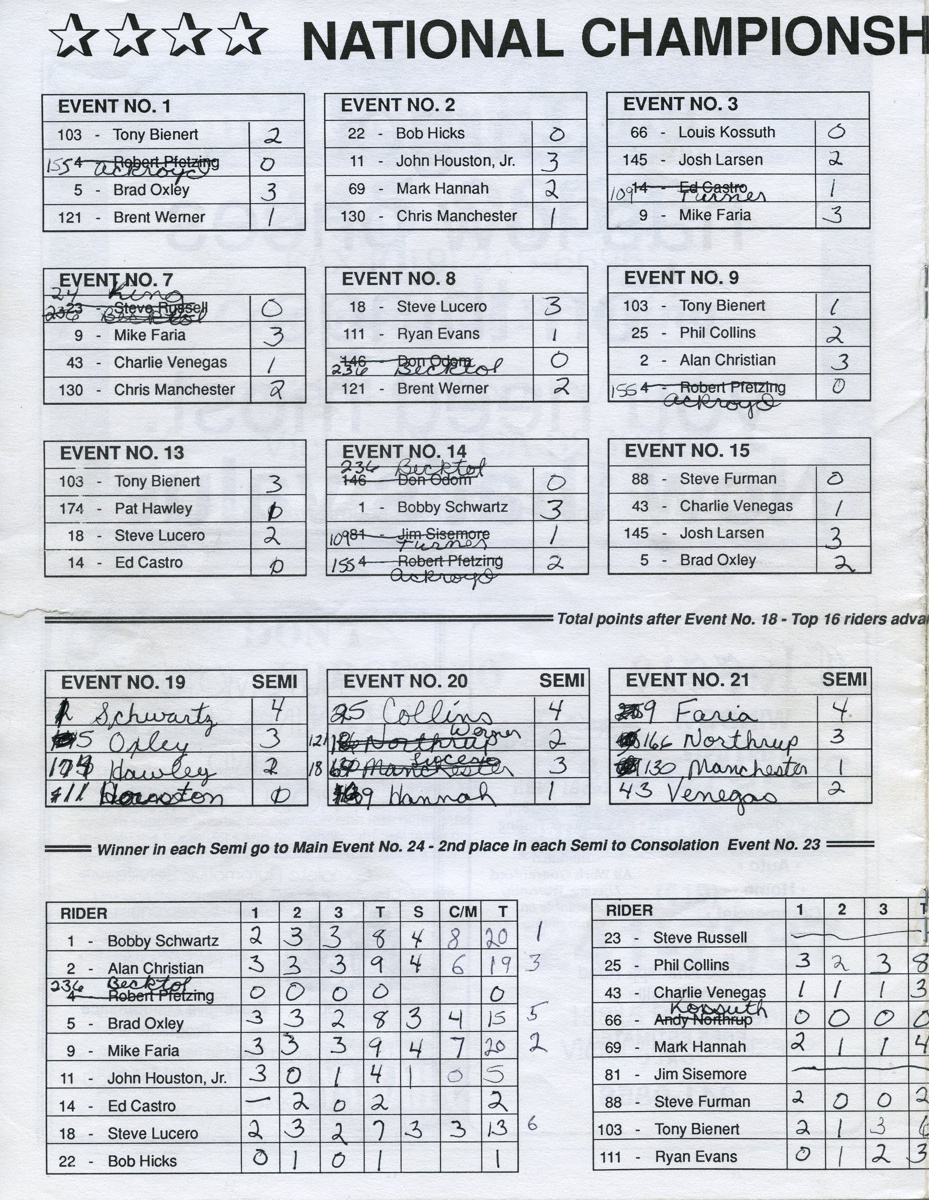 NATIONAL CHAMPIONSH
EVENT NO. 1
103 - Tony Bienert 2
155 4 - Robert Pfetzing 0
Ackroyd
5 - Brad Oxley 3
121 - Brent Werner 1
EVENT NO. 2
22 - Bob Hicks 0
11 - John Houston, Jr. 3
69 - Mark Hannah 2
130 - Chris Manchester 1
EVENT NO. 3
66 - Louis Kossuth 0
145 - Josh Larsen 2
109 14 - Ed Castro 1
Turner
9 - Mike Faria 3
EVENT NO. 7
24 King
23 - Steve Russell 0
236 Becktol
9 - Mike Faria 3
43 - Charlie Venegas 1
130 - Chris Manchester 2
EVENT NO. 8
18 - Steve Lucero 3
111 - Ryan Evans 1
146 - Don Odom 0
236 Becktol
121 - Brent Werner 2
EVENT NO. 9
103 - Tony Bienert 1
25 - Phil Collins 2
2 - Alan Christian 3
155 4 - Robert Pfetzing 0
Ackroyd
EVENT NO. 13
103 - Tony Bienert 3
174 - Pat Hawley
18 - Steve Lucero 2
14 - Ed Castro
EVENT NO. 14
236 Becktol
146 - Don Odom 0
1 - Bobby Schwartz 3
109 81 - Jim Sisemore 1
Turner
155 4 - Robert Pfetzing 2
Ackroyd
EVENT NO. 15
88 - Steve Furman 0
43 - Charlie Venegas 1
145 - Josh Larsen 3
5 - Brad Oxley 2
Total points after Event No. 18 - Top 16 riders adva
EVENT NO. 19 SEMI
1 Schwartz 4
5 Oxley 3
174 Hawley 2
11 Houston 0
EVENT NO. 20 SEMI
25 Collins 4
Werner
121 Northrup 2
Lucero
18 Manchester 3
69 Hannah 1
EVENT NO. 21 SEMI
9 Faria 4
166 Northrup 3
130 Manchester 1
43 Venegas 2
Winner in each Semi go to Main Event No. 24 - 2nd place in each Semi to Consolation Event No. 23
RIDER 1 2 3 T S C/M T
1 - Bobby Schwartz 2 3 3 8 4 8 20 1
2 - Alan Christian 3 3 3 9 4 6 19 3
236 Becktol
4 - Robert Pfetzing 0 0 0 0 0
5 - Brad Oxley 3 3 2 8 3 4 15 5
9 - Mike Faria 3 3 3 9 4 7 20 2
11 - John Houston, Jr. 3 0 1 4 1 0 5
14 - Ed Castro — 2 0 2 2
18 - Steve Lucero 2 3 2 7 3 3 13 6
22 - Bob Hicks 0 1 0 1 1
RIDER 1 2 3 T
23 - Steve Russell
25 - Phil Collins 3 2 3 8
43 - Charlie Venegas 1 1 1 3
Kossuth
66 - Andy Northrup 0 0 0 0
69 - Mark Hannah 2 1 1 4
81 - Jim Sisemore
88 - Steve Furman 2 0 0 2
103 - Tony Bienert 2 1 3 6
111 - Ryan Evans 0 1 2 3